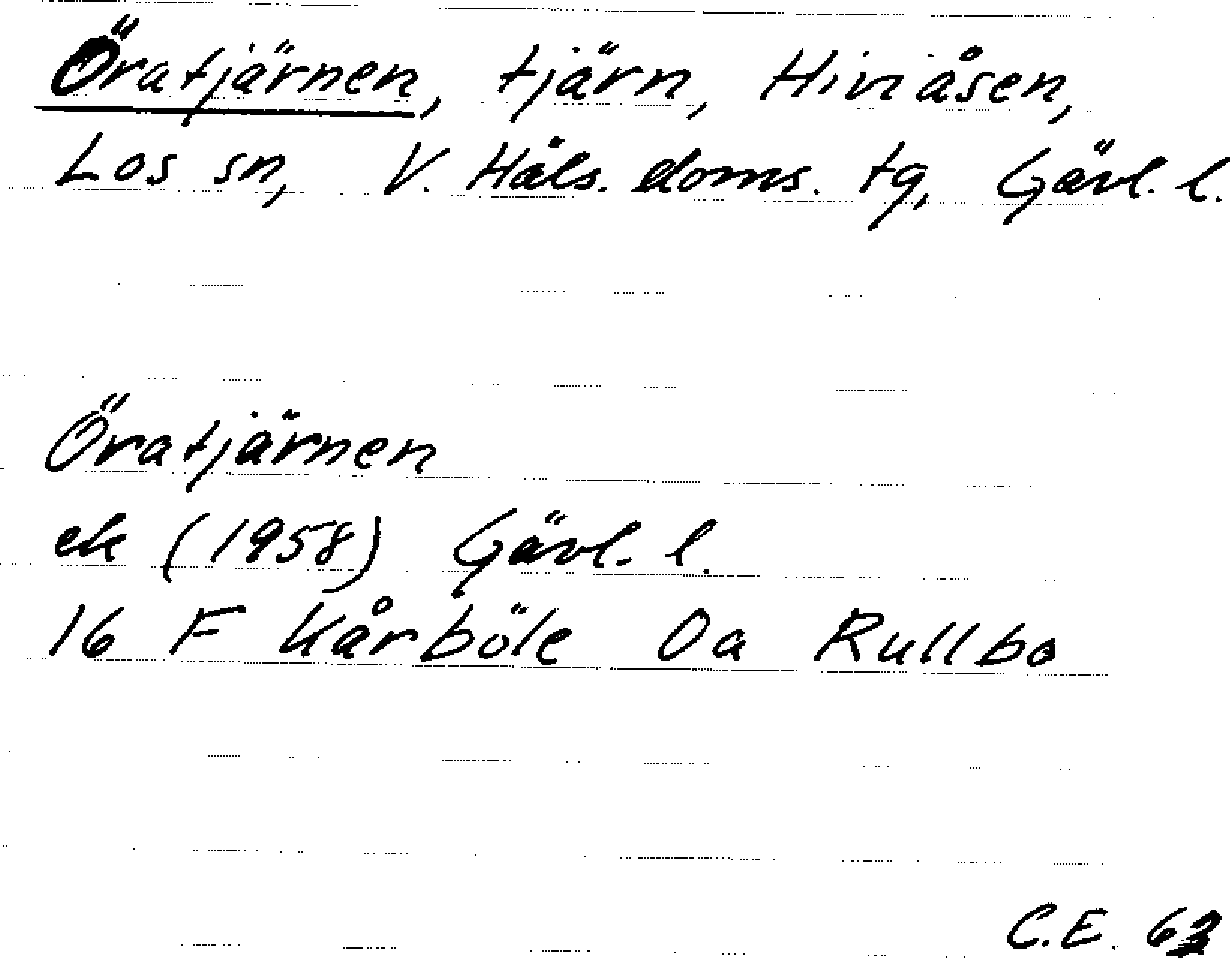 Öratjärnen, tjärn, Hiviåsen,
Los sn, V. Häls. doms. tg, Gävl. l.
Öratjärnen
ek (1958) Gävl. l.
16 F Kårböle 0a Rullbo
C.E.